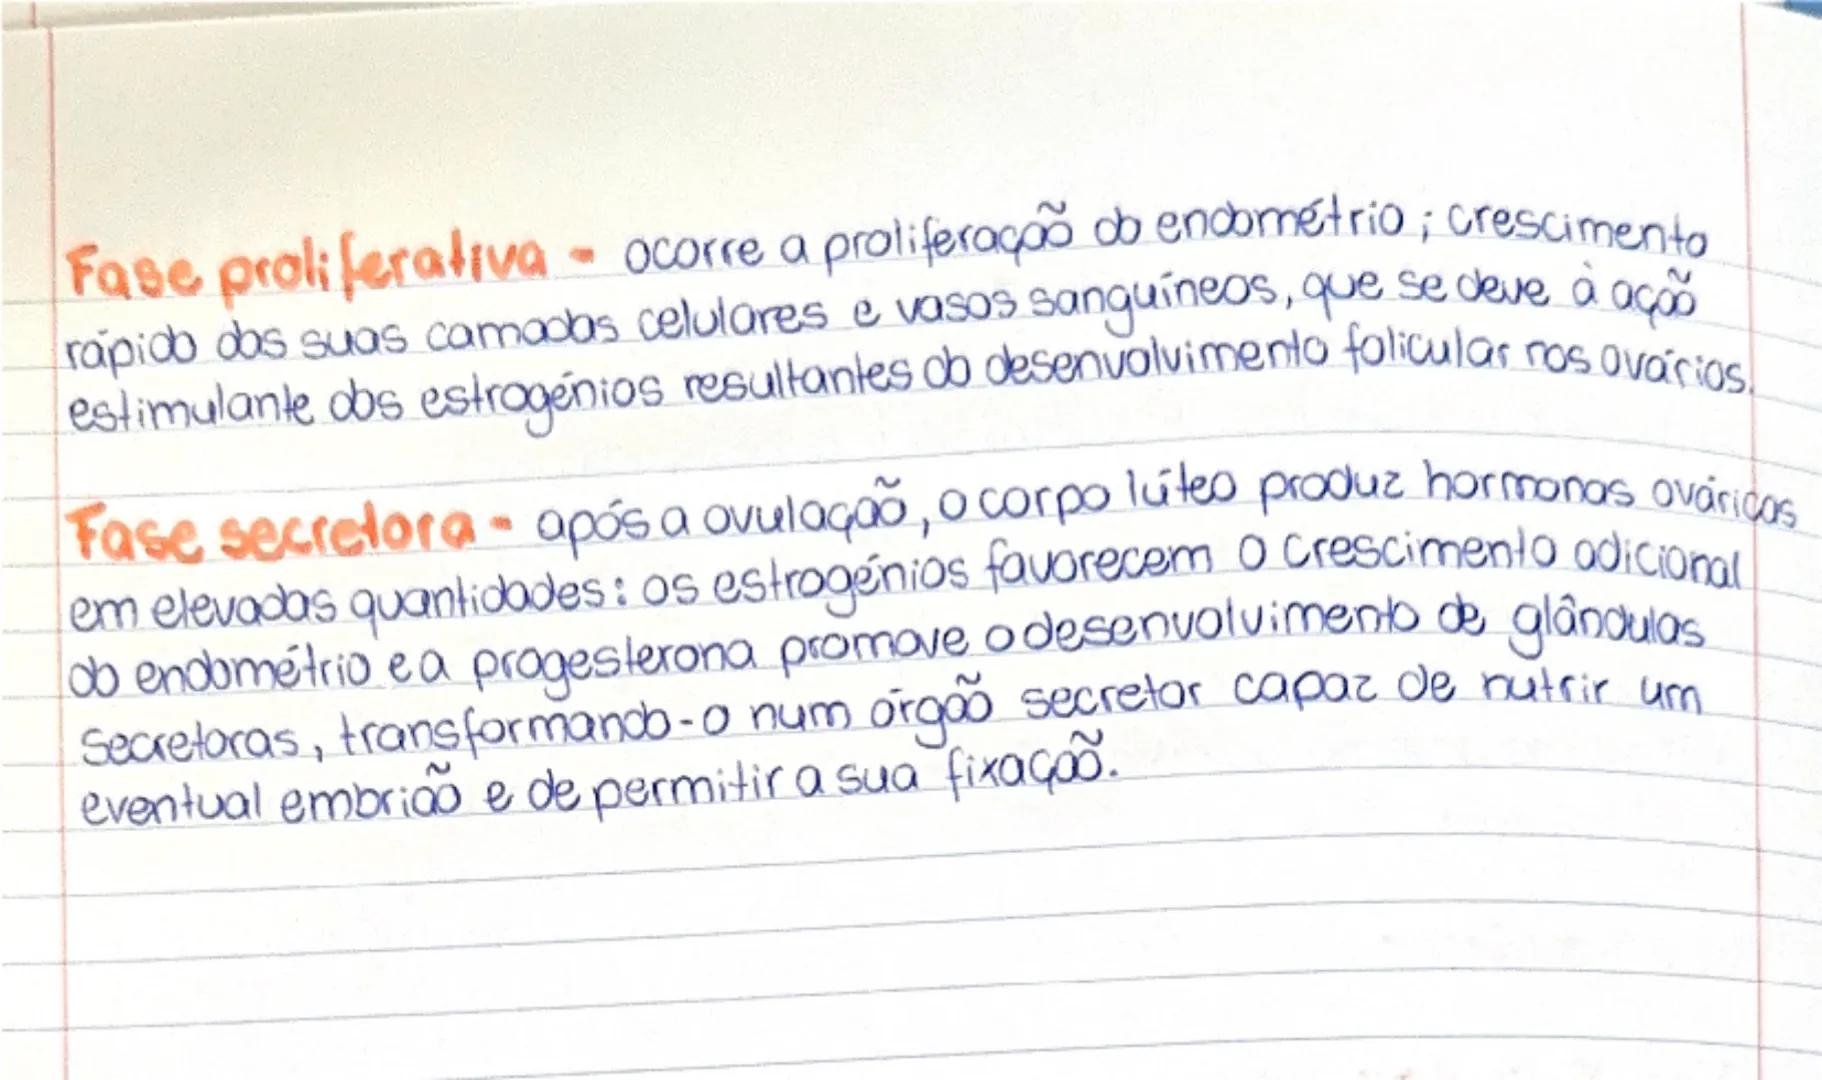 Fase proliferativa - ocorre a proliferação do endométrio ; crescimento
rápido das suas camadas celulares e vasos sanguíneos, que se deve à ação
estimulante dos estrogénios resultantes do desenvolvimento folicular nos ovários.
Fase secretora - após a ovulação, o corpo lúteo produz hormonas ováricas
em elevadas quantidades: os estrogénios favorecem o crescimento adicional
do endométrio e a progesterona promove o desenvolvimento de glândulas
secretoras, transformando-o num órgão secretor capaz de nutrir um
eventual embrião e de permitir a sua fixação.